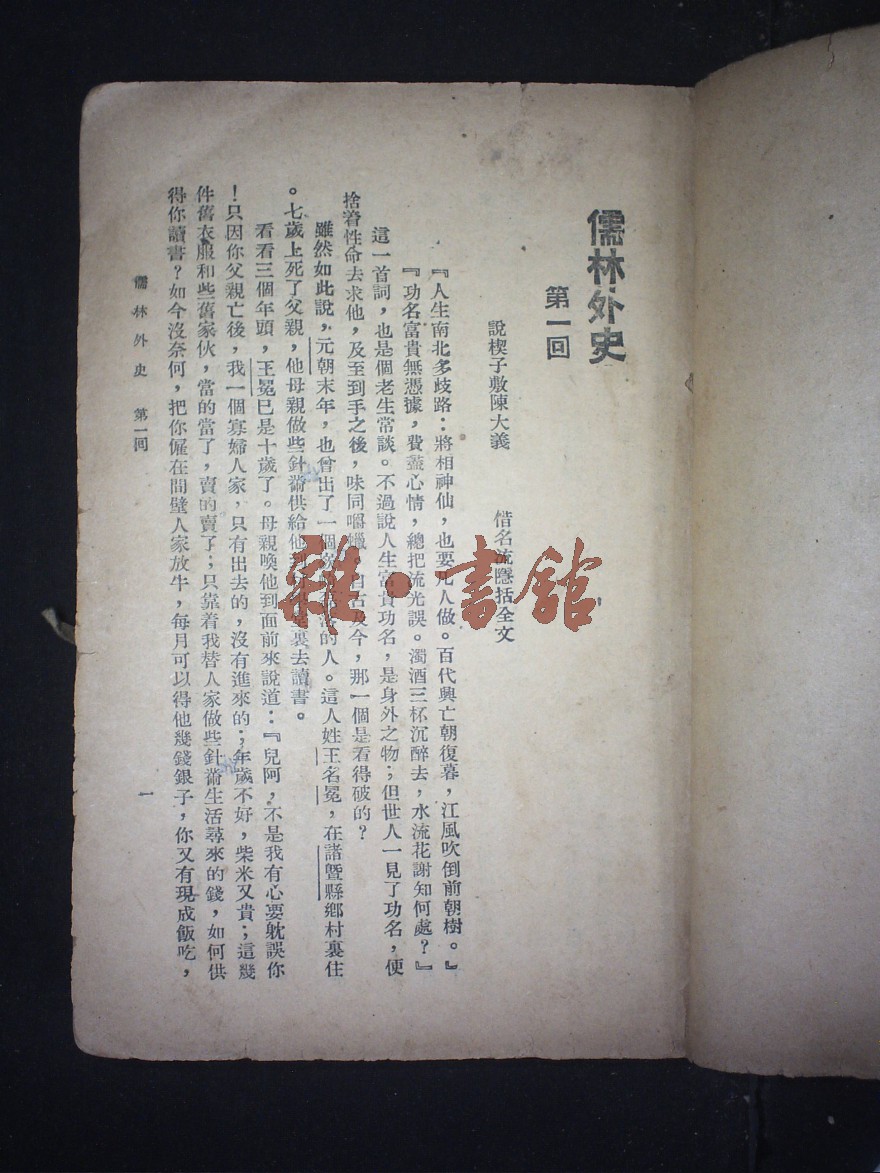 儒林外史
第一回
說楔子敷陳大義 借名流隱括全文
『人生南北多歧路：將相神仙，也要凡人做。百代興亡朝復暮，江風吹倒前朝樹。』
『功名富貴無憑據，費盡心情，總把流光誤。濁酒三杯沉醉去，水流花謝知何處？』
這一首詞，也是個老生常談。不過說人生富貴功名，是身外之物；但世人一見了功名，便
捨着性命去求他，及至到手之後，味同嚼蠟。自古及今，那一個是看得破的？
雖然如此說，元朝末年，也曾出了一個嶔的人。這人姓王名冕，在諸暨縣鄉村裏住
。七歲上死了父親，他母親做些針黹供給他到裏去讀書。
看看三個年頭，王冕巳是十歲了。母親喚他到面前來說道：『兒阿，不是我有心要躭誤你
！只因你父親亡後，我一個寡婦人家，只有出去的，沒有進來的；年歲不好，柴米又貴；這幾
件舊衣服和些舊家伙，當的當了，賣的賣了；只靠着我替人家做些針黹生活尋來的錢，如何供
得你讀書？如今沒奈何，把你僱在間壁人家放牛，每月可以得他幾錢銀子，你又有現成飯吃，
儒林外史 第一回
一
雜·書館